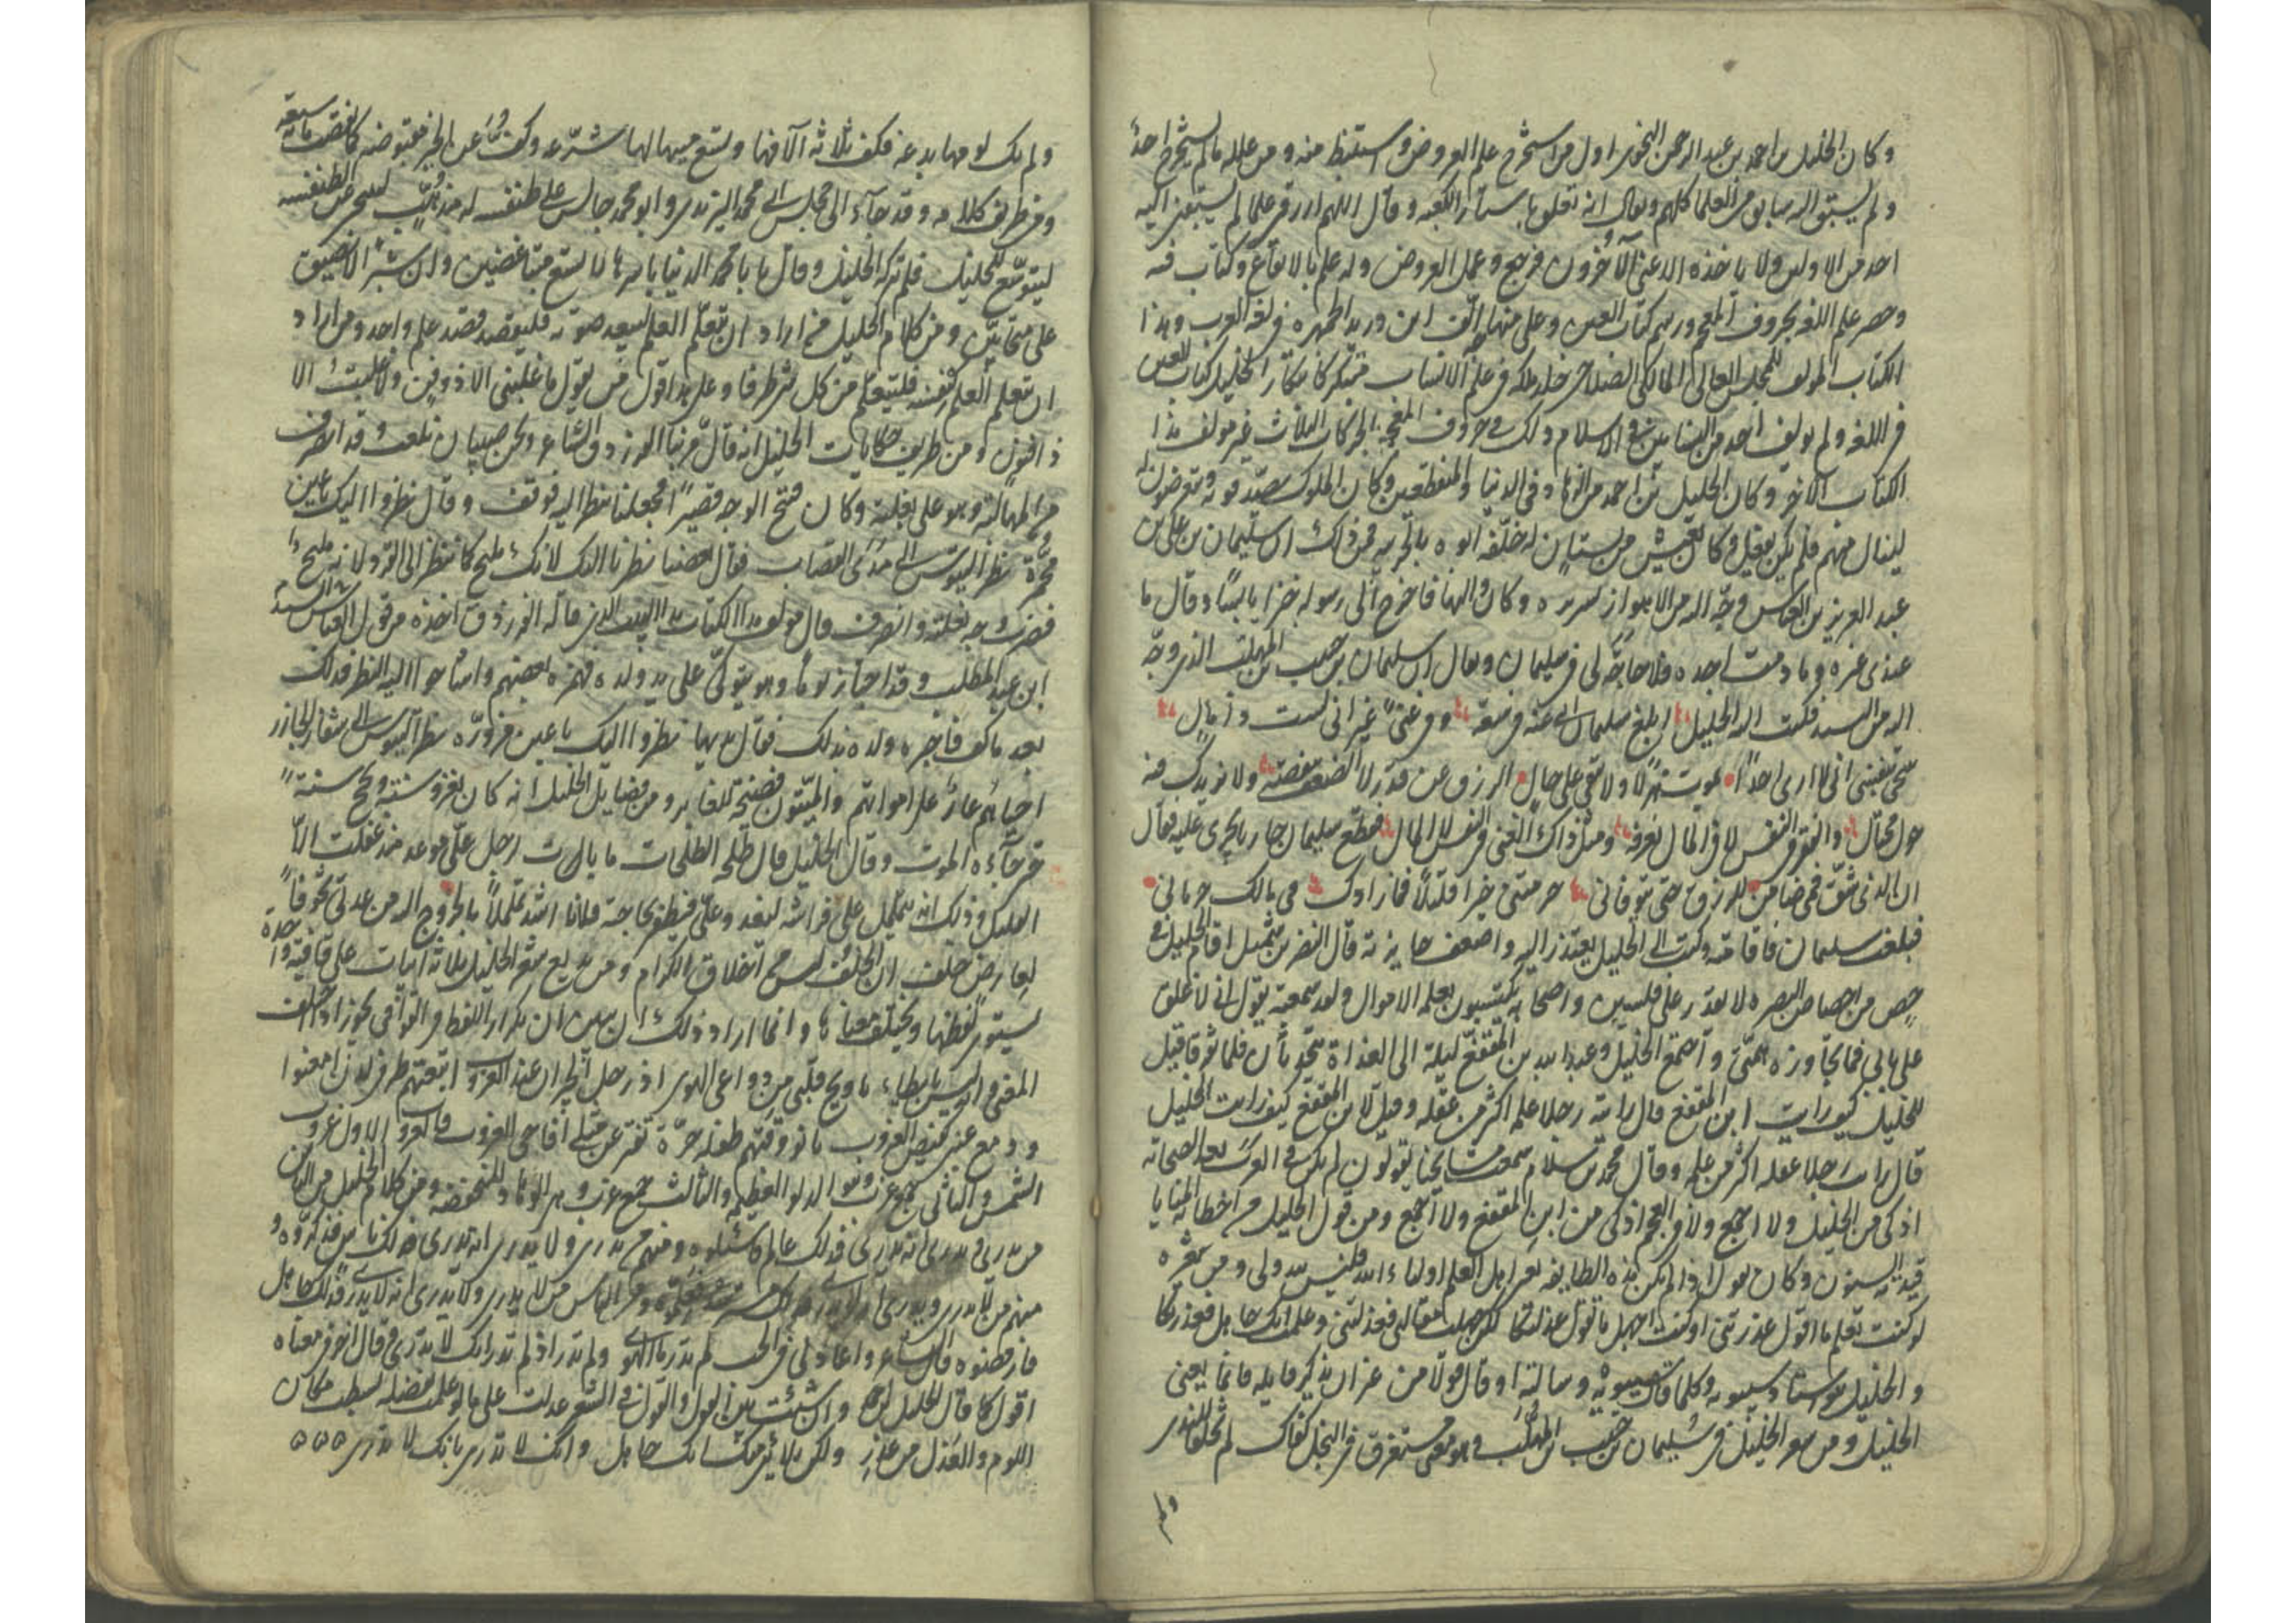 وكان الخليل بن احمد بن عبد الرحمن النحوى اول من استخرج علم العروض واستنبط منه ومن علله مالم يستخرج احد
ولم يسبق اليه سابق من العلما كلهم ويقال انه تعلق باستار الكعبه وقال اللهم ارزقنى علما لم يسبقنى اليه
احد من الاولين ولا ياخذه الا عنى الآخرون فرجع وعمل العروض وله علم بالايقاع وكتاب فيه
وحصر علم اللغه بحروف المعجم ورسم كتاب العين وعلى منهاجه الّف ابن دريد الجمهره فى لغة العرب وهذا
الكتاب المولف للمجلس العالى المالكى الصلاحى خلد ملكه فى علم الانساب مبتكر كابتكار الخليل كتاب العين
فى اللغه ولم يولف احد من النسابين فى الاسلام ذلك على حروف المعجم بالحركات الثلاث غير مولف هذا
الكتاب الآخر وكان الخليل بن احمد من الزهاد فى الدنيا والمنقطعين وكان الملوك يقصدونه ويتعرضون له
لينال منهم فلم يكن يفعل وكان يعيش من بستان له خلّفه ابوه بالخريبه فمن ذلك ان سليمان بن على بن
عبد العزيز بن العباس وجّه اليه من الاهواز لسريره وكان والها فاخرج الى رسوله خبزا يابسًا وقال ما
عندى غيره وما دمت اجده فلا حاجة لى فى سليمان ويقال ان سليمان بن حبيب المهلبى الذى وجّه
اليه من السند فكتب اليه الخليل ابلغ سليمان انى عنه فى سعة وفى غنىً غير انى لست ذا مال
سخى بنفسى انى لا ارى احدًا يموت هزلًا ولا يبقى على حال الرزق عن قدر لا الضعف ينقصه ولا يزيدك فيه
حول محتال والفقر فى النفس لا فى المال نعرفه ومثل ذاك الغنى فى النفس لا المال فقطع سليمان جاريا يجرى عليه فقال
ان الذى شقّ فمى ضامن للرزق حتى يتوفانى حرمتنى خيرا قليلًا فما زادك فى مالك حرمانى
فبلغت سليمان فاقامته وكتب الى الخليل يعتذر اليه واضعف جايزته قال النضر بن شميل اقام الخليل فى
خص من اخصاص البصره لا يقدر على فلسين واصحابه يكتسبون بعلمه الاموال ولقد سمعته يقول انى لاغلق
على بابى فما يجاوزه همّى واجتمع الخليل وعبد الله بن المقفع ليلة الى الغداة يتحدثان فلما تفرقا قيل
للخليل كيف رايت ابن المقفع قال رايت رجلا علمه اكثر من عقله وقيل لابن المقفع كيف رايت الخليل
قال رايت رجلا عقله اكثر من علمه وقال محمد بن سلام سمعت مشايخنا يقولون لم يكن فى العرب بعد الصحابه
اذكى من الخليل ولا اجمع ولا فى العجم اذكى من ابن المقفع ولا اجمع ومن قول الخليل من اخطاته المنايا
قيدته السنون وكان يقول اذا لم تكن هذه الطايفه يعنى اهل العلم اولياء الله فليس لله ولى ومن شعره
لو كنت تعلم ما اقول عذرتنى او كنت اجهل ما تقول عذلتكا لكن جهلت مقالتى فعذلتنى وعلمت انك جاهل فعذرتكا
والخليل هو استاذ سيبويه وكلما قال سيبويه وسالته او قال قولا من غير ان يذكر قايله فانما يعنى
الخليل ومن شعر الخليل فى سليمان بن حبيب بن المهلب وهو معنى مستغرق فى البخل كفاك لم تخلقا للندى
ولم
ولم يك لومهما بدعة فكف ثلاثة آلافها وتسع ميها لها شرعه وكف عن الخير مقبوضة كما نقصت مايه سبعه
ومن طريف كلامه وقد جاء الى مجلس ابى محمد اليزيدى وابو محمد جالس على طنفسه له فذهب ليتنحى عن الطنفسه
ليتوسّع للخليل فلم يتركه الخليل وقال يا با محمد الدنيا باسرها لا تسع متباغضين وان شبرًا لا يضيق
على متحابّين ومن كلام الخليل من اراد ان يتعلّم العلم ليبعد صوته فليقصد قصد علم واحد ومن اراد
ان يتعلم العلم لنفسه فليتعلم من كل شى طرفا وعلى هذا قول من يقول ما غلبنى الا ذو فن ولا غلبت الا
ذا فنون ومن طريف حكايات الخليل انه قال مرّ بنا الفرزدق الشاعر ونحن صبيان نلعب وقد انصرف
من المهالبة وهو على بغلته وكان قبيح الوجه قصيرًا فجعلنا ننظر اليه فوقف وقال نظروا اليك باعين
محمرّة نظر التيوس الى مُدَى القصاب فقال بعضنا نظرنا اليك لانك مليح كما ننظر الى القرد لانه مليح
فضرب وجه بغلته وانصرف قال مولف هذا الكتاب هذا البيت الذى قاله الفرزدق اخذه من قول العباس
ابن عبد المطلب وقد اجتاز يومًا وهو يتوكّى على يد ولده فهمزه بعضهم واشاحوا اليه النظر وذلك
بعد ما كف فاخبره ولده بذلك فقال بديها نظروا اليك باعين مزورّه نظر التيوس الى شفار الجازر
احياؤهم عار على امواتهم والميّتون فضيحة للغابر ومن فضايل الخليل انه كان يغزو سنة ويحج سنةً
حتى جاءه الموت وقال الخليل قال طلحة الطلحات ما بات رجل على موعد منذ عقلت الا
لعارض خلف ان الخلف ليس من اخلاق الكرام ومن بديع شعر الخليل ثلاثة ابيات على قافية واحدة
يستوى لفظها ويختلف معناها وانما اراد ذلك ان يبين ان تكرار اللفظ فى القوافى يجوز اذا اختلف
المعنى وليس بايطاء يا ويح قلبى من دواعى الهوى اذ رحل الجيران عند الغروب اتبعتهم طرفى وقد امعنوا
ودمع عينى كفيض الغروب بانوا وفيهم طفلة حرّة تفتر عن مثل اقاحى الغروب فالغروب الاول غروب
الشمس والثانى جمع غرب وهو الدلو العظيمه والثالث جمع غرب وهى الوهاد المنخفضه ومن كلام الخليل من الناس
من يدرى ويدرى انه يدرى فذلك عالم فسئلوه ومنهم من يدرى ولا يدرى انه يدرى فذلك ناس فذكّروه و
منهم من لا يدرى ويدرى انه لا يدرى ومن الناس من لا يدرى ولا يدرى انه لا يدرى فذلك جاهل
فارفضوه قال الشاعر واعاذلى فى الحب لم تدر ما الهوى ولم تدر اذ لم تدر انك لا تدرى وقال آخر فى معناه
اللوم والعذل من عاذر ولكن بلائى منك انك جاهل وانك لا تدرى بانك لا تدرى